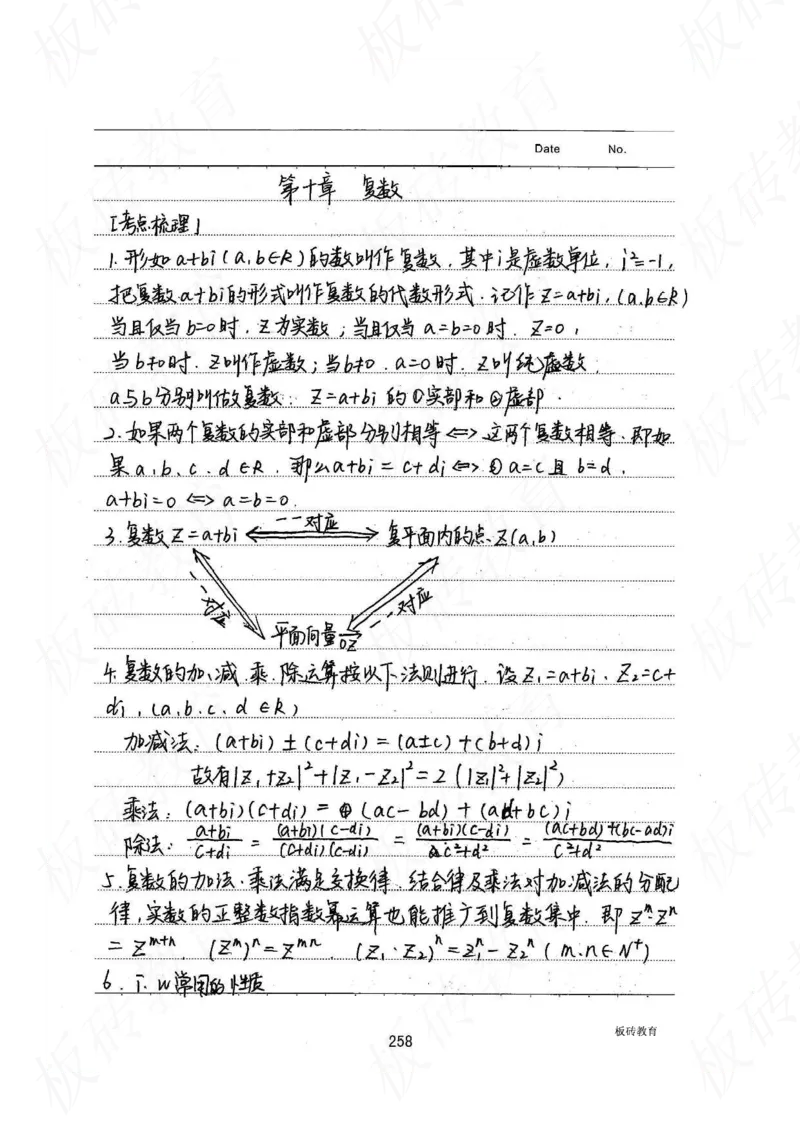 Date No.
第十章 复数
[考点梳理]
1.形如a+bi(a,b∈R)的数叫作复数,其中i是虚数单位,i²=-1,
把复数a+bi的形式叫作复数的代数形式.记作z=a+bi,(a.b∈R)
当且仅当b=0时,z为实数;当且仅当a=b=0时.z=0,
当b≠0时.z叫作虚数;当b≠0.a=0时.z叫纯虚数.
a与b分别叫做复数:z=a+bi的①实部和②虚部.
2.如果两个复数的实部和虚部分别相等<=>这两个复数相等.即如
果a.b.c.d∈R.那么a+bi=c+di<=>①a=c且b=d.
a+bi=0<=>a=b=0.
3.复数z=a+bi 一一对应 复平面内的点Z(a,b)
一一对应 一一对应
平面向量OZ
4.复数的加、减.乘.除运算按以下法则进行.设z₁=a+bi.z₂=c+
di,(a.b.c.d∈R)
加减法:(a+bi)±(c+di)=(a±c)+(b+d)i
故有|z₁+z₂|²+|z₁-z₂|²=2(|z₁|²+|z₂|²)
乘法:(a+bi)(c+di)=(ac-bd)+(ad+bc)i
除法:(a+bi)/(c+di)=(a+bi)(c-di)/(c+di)(c-di)=(a+bi)(c-di)/c²+d²=(ac+bd)+(bc-ad)i/c²+d²
5.复数的加法.乘法满足交换律.结合律及乘法对加.减法的分配
律,实数的正整数指数幂运算也能推广到复数集中.即zⁿ·zⁿ
=z^{m+n}.(z^m)^n=z^{mn}.(z₁·z₂)^n=z₁^n-z₂^n(m.n∈N⁺)
6.i.w常用的性质
板砖教育
258